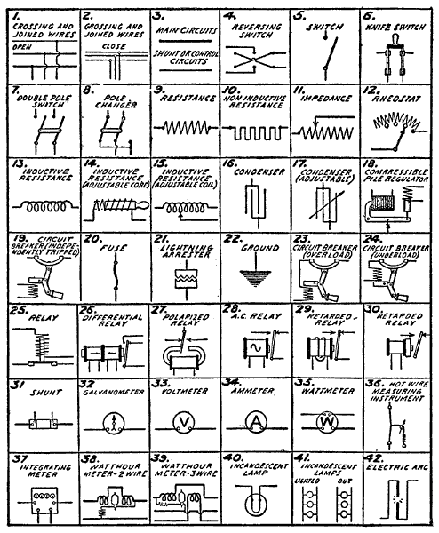 1.
CROSSING AND
JOINED WIRES
OPEN
2.
CROSSING AND
JOINED WIRES
CLOSE
3.
MAIN CIRCUITS
SHUNT OR CONTROL
CIRCUITS
4.
REVERSING
SWITCH
5.
SWITCH
6.
KNIFE SWITCH
7.
DOUBLE POLE
SWITCH
8.
POLE
CHANGER
9.
RESISTANCE
10.
NON INDUCTIVE
RESISTANCE
11.
IMPEDANCE
12.
RHEOSTAT
13.
INDUCTIVE
RESISTANCE
14.
INDUCTIVE
RESISTANCE
(ADJUSTABLE CORE)
15.
INDUCTIVE
RESISTANCE
(ADJUSTABLE COIL)
16.
CONDENSER
17.
CONDENSER
(ADJUSTABLE)
18.
COMPRESSIBLE
PILE REGULATOR
19.
CIRCUIT
BREAKER (INDEPEN-
DENTLY TRIPPED)
20.
FUSE
21.
LIGHTNING
ARRESTER
22.
GROUND
23.
CIRCUIT BREAKER
(OVERLOAD)
24.
CIRCUIT BREAKER
(UNDERLOAD)
25.
RELAY
26.
DIFFERENTIAL
RELAY
27.
POLARIZED
RELAY
28.
A.C. RELAY
29.
RETARDED
RELAY
30.
RETARDED
RELAY
31
SHUNT
32
GALVANOMETER
33.
VOLTMETER
V
34.
AMMETER
A
35.
WATTMETER
W
36.
HOT WIRE
MEASURING
INSTRUMENT
37
INTEGRATING
METER
38.
WATTHOUR
METER-2 WIRE
39.
WATTHOUR
METER-3 WIRE
40.
INCANDESCENT
LAMP
41.
INCANDESCENT
LAMPS
LIGHTED OUT
42.
ELECTRIC ARC